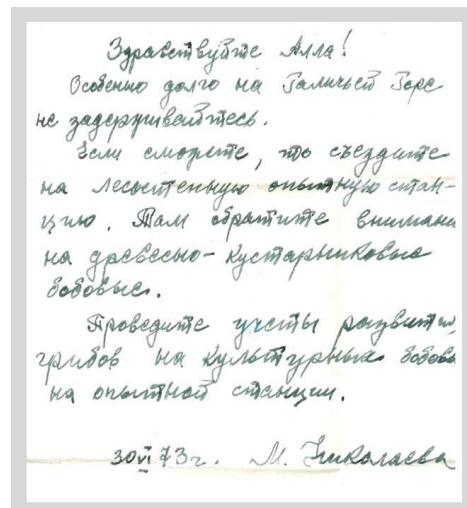 Здравствуйте Алла!
Особенно долго на Галичьей Горе
не задерживайтесь.
Если сможете, то съездите
на лесостепную опытную стан-
цию. Там обратите внимани
на древесно-кустарниковые
бобовые.
Проведите учеты развития
грибов на культурных бобовы
на опытной станции.
30 VI 73 г. М. Николаева